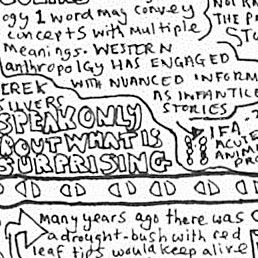 ogy 1 word may convey
concepts with multiple
meanings. WESTERN
anthropolgy HAS ENGAGED
WITH NUANCED INFORM
AS INFANTILE
STORIES
THE P
EREK
SILVERS
SPEAK ONLY
BOUT WHAT IS
SURPRISING
IFA
ACUTE
ANIM
PRO
Many years ago there was
a drought-bush with red
leaf tips would keep alive